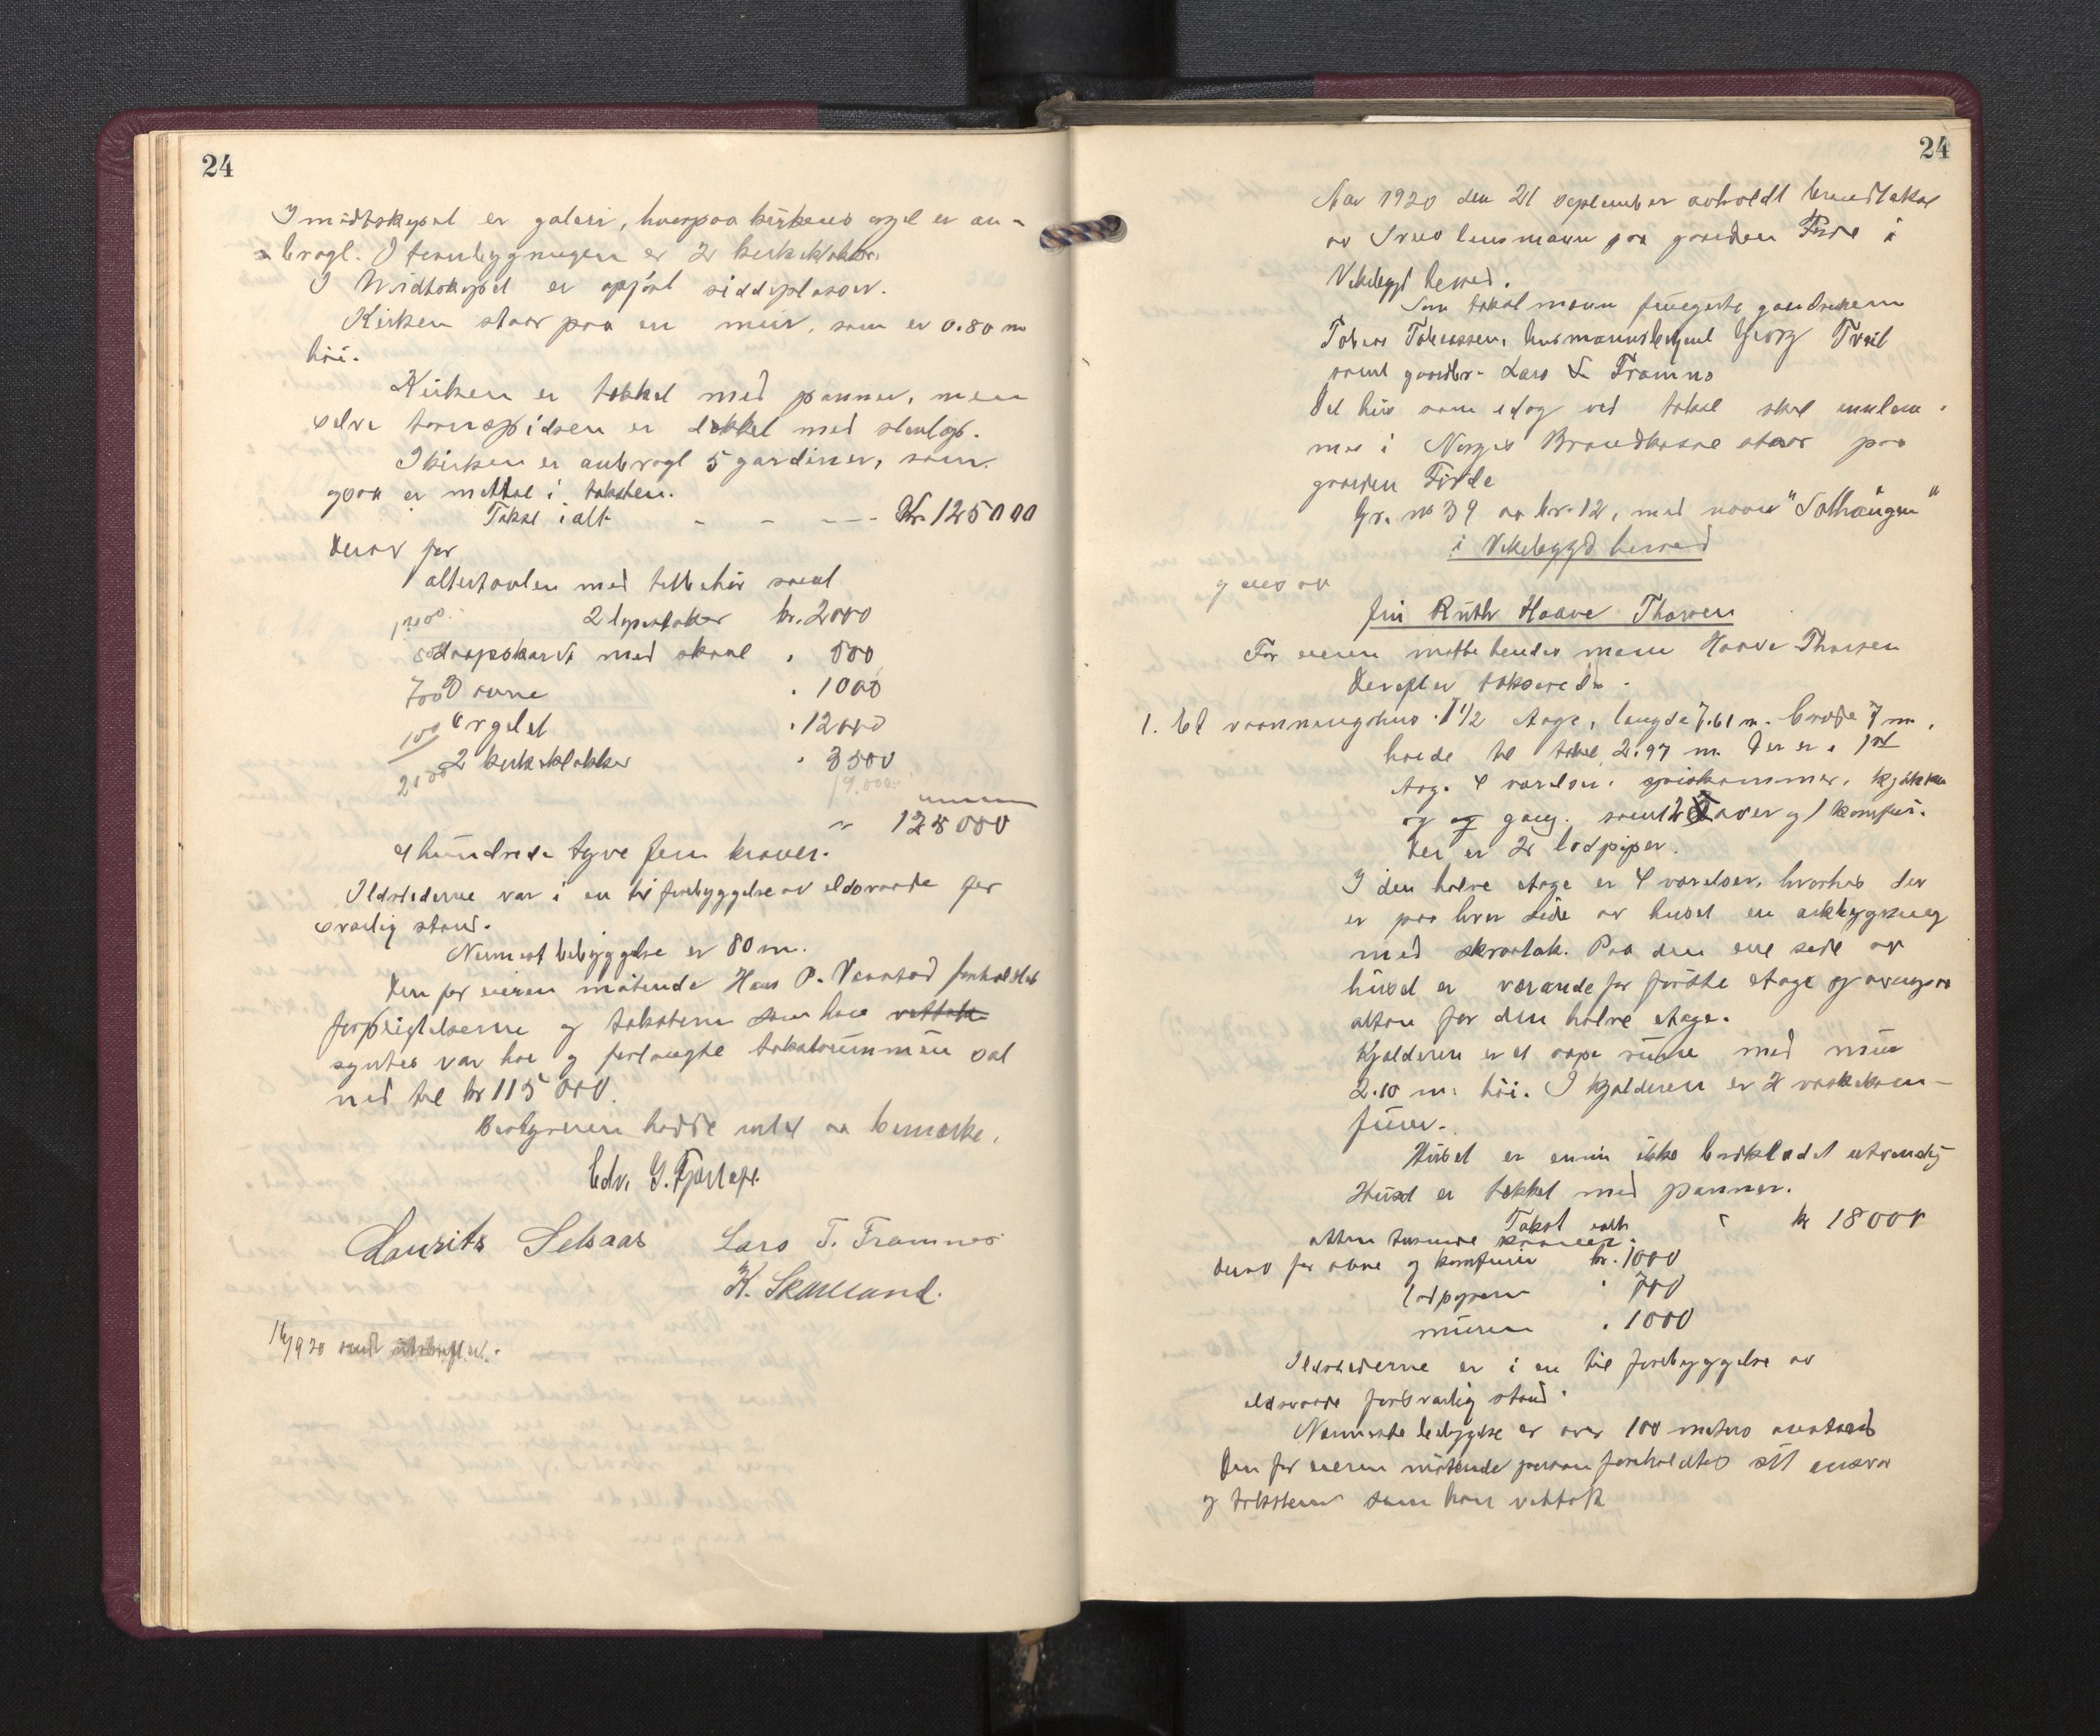 24
I midtskipet er galeri, hvorpaa kirkens orgel er an-
bragt. I taarnbygningen er 2 kirkeklokker.
I Midtskipet er opført siddeplasser.
Kirken staar paa en mur, som er 0.80 m
høi.
Kirken er tekket med panner, men
selve taarnspidsen er dekket med
I kirken er anbragt 5 gardiner, som
ogsaa er mettat i taksten.
Takst ialt - - - - - Kr. 125000
Derav for
altertavlen med tilbehør samt
2 lysestaker kr. 2000
døpskarv med skaal " 500
Ovne " 1000
Orgelet " 12000
2 kirkeklokker " 3500
19.000
125 000
et hundrede tyve fem kroner.
Ildstederne var i en til forebyggelse av eldsvaade for
svarlig stand.
Nermest bebyggelse er 80 m.
Den for eieren møtende Hans P. foreholdtes
forpligtelserne og taksterne som han vettok
syntes var høi og forlangte takstsummen sat
ned til kr 115 000.
Bestyreren hadde intet aa bemerke.
Edv. G.
Laurits Selsaas Lars T. Framnes
K. Skarland.
1920 sendt utskrift
24
Aar 1920 den 21 september avholdt brandtakst
av lensmann paa gaarden Førde i
Vikebygd herred.
Som takstmænn fungerte gaardbrukerne
Tobias Tobiassen, husmannsbetjent Georg Tveit
samt gaardbr. Lars T. Framnes
Det hus som idag ved takst skal innlem-
mes i Norges Brandkasse staar paa
gaarden Førde
Gr. no 39 av br. 12, med navn "Solhaugen"
i Vikebygd herred
og eies av
fru Ruth Haave Thorsen
For eieren møtte hendes mann Haave Thorsen
Derefter takseredes.
1. Et vaaningshus 1 1/2 etage, længde 7.61 m. bredde 7 m.
høide til taket 2.97 m. Der er i 1ste
etag. 4 værelser, spiskammer, kjøkken
og og gang. samt 2 ovner og 1 komfur.
Der er 2 lodpiper.
I den halve etage er 4 værelser, hvorhos der
er paa hver side av huset en arkbygning
med skraatak. Paa den ene side av
huset er værande for første etage og ovenpaa
altan for den halve etage.
Kjælderen er et rum med mur
2.10 m. høi. I kjælderen er 2 vaskekom-
furer.
Huset er ennu ikke bordklædet utvendig
Huset er tekket med panner.
Takst ialt " kr 18000
atten tusende kroner.
Derav for ovne og komfurer kr. 1000
lodpiperne " 700
muren " 1000
Ildstederne er i en til forebyggelse av
eldsvaade forsvarlig stand.
Nermeste bebyggelse er over 100 meters avstand
Den for eieren møtende person foreholdtes sit ansvar
og taksterne som han vettok